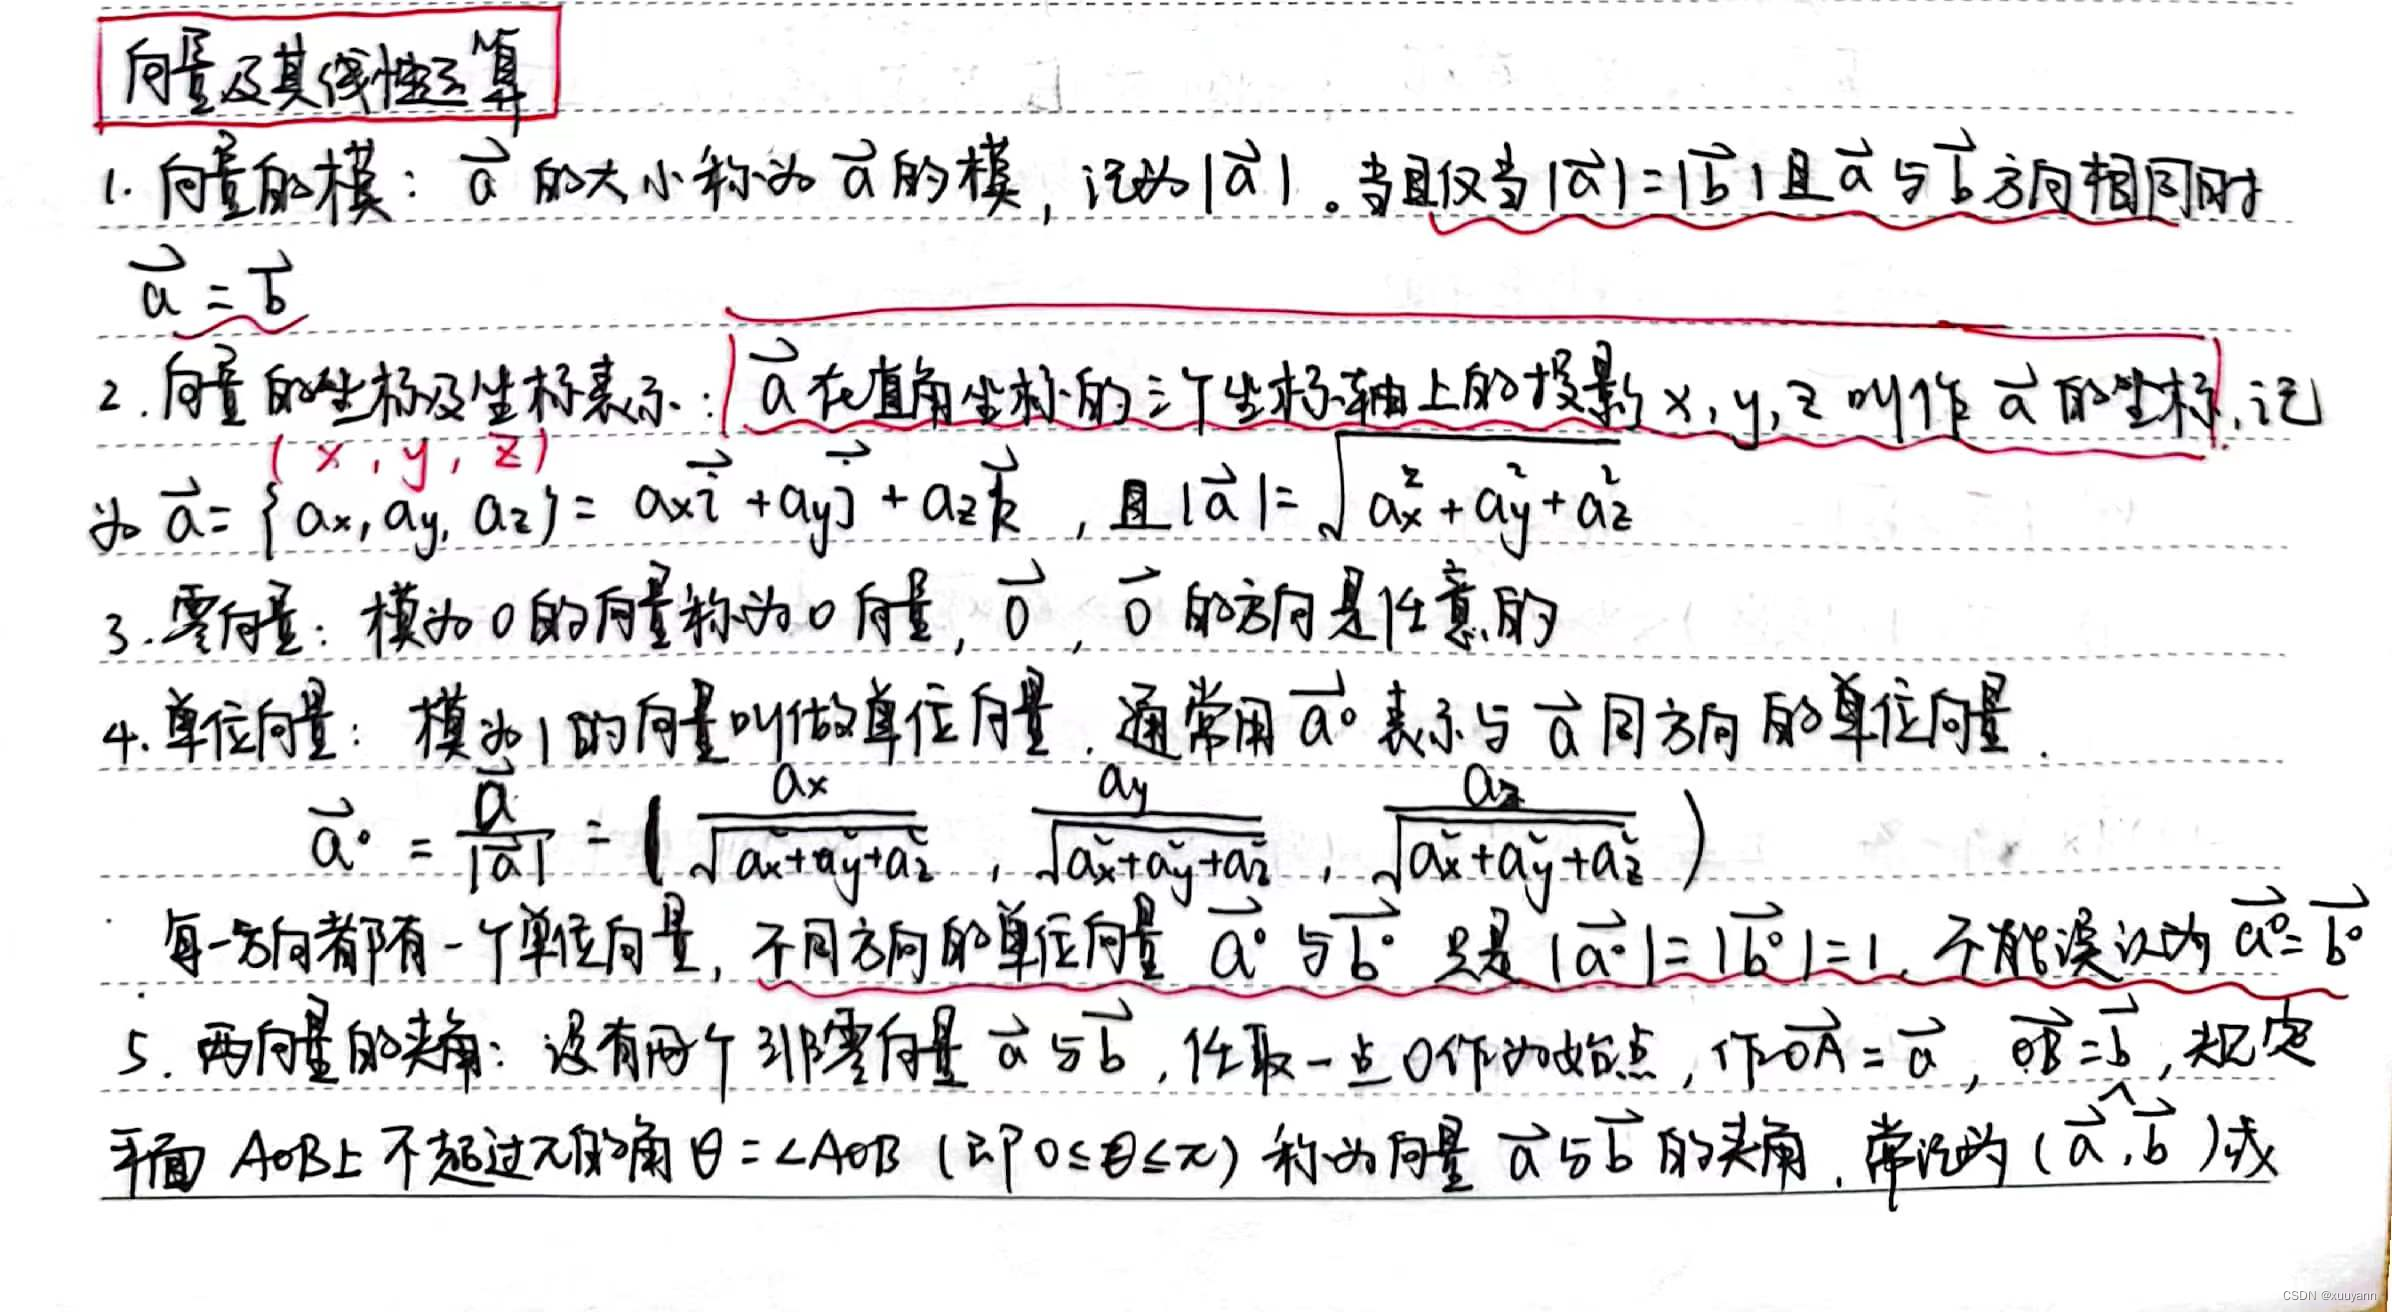 向量及其线性运算
1. 向量的模： $\vec{a}$ 的大小称为 $\vec{a}$ 的模，记为 $|\vec{a}|$ 。当且仅当 $|\vec{a}|=|\vec{b}|$ 且 $\vec{a}$ 与 $\vec{b}$ 方向相同时
$\vec{a}=\vec{b}$
2. 向量的坐标及坐标表示： $\vec{a}$ 在直角坐标的三个坐标轴上的投影 x, y, z 叫作 $\vec{a}$ 的坐标, 记
(x, y, z)
为 $\vec{a}=\{a_x, a_y, a_z\}=a_x\vec{i}+a_y\vec{j}+a_z\vec{k}$ , 且 $|\vec{a}|=\sqrt{a_x^2+a_y^2+a_z^2}$
3. 零向量：模为0的向量称为0向量, $\vec{0}$ , $\vec{0}$ 的方向是任意的
4. 单位向量：模为1的向量叫做单位向量. 通常用 $\vec{a}^\circ$ 表示与 $\vec{a}$ 同方向的单位向量.
$\vec{a}^\circ=\frac{\vec{a}}{|\vec{a}|}=(\frac{a_x}{\sqrt{a_x^2+a_y^2+a_z^2}}, \frac{a_y}{\sqrt{a_x^2+a_y^2+a_z^2}}, \frac{a_z}{\sqrt{a_x^2+a_y^2+a_z^2}})$
每一方向都有一个单位向量, 不同方向的单位向量 $\vec{a^\circ}$ 与 $\vec{b^\circ}$ 只是 $|\vec{a^\circ}|=|\vec{b^\circ}|=1$ , 不能误认为 $\vec{a^\circ}=\vec{b^\circ}$
5. 两向量的夹角：设有两个非零向量 $\vec{a}$ 与 $\vec{b}$ , 任取一点O作为始点, 作 $\vec{OA}=\vec{a}$ , $\vec{OB}=\vec{b}$ , 规定
平面AOB上不超过π的角θ=∠AOB (即 0≤θ≤π) 称为向量 $\vec{a}$ 与 $\vec{b}$ 的夹角. 常记为 $(\widehat{\vec{a},\vec{b}})$ 或
CSDN @xuuyann